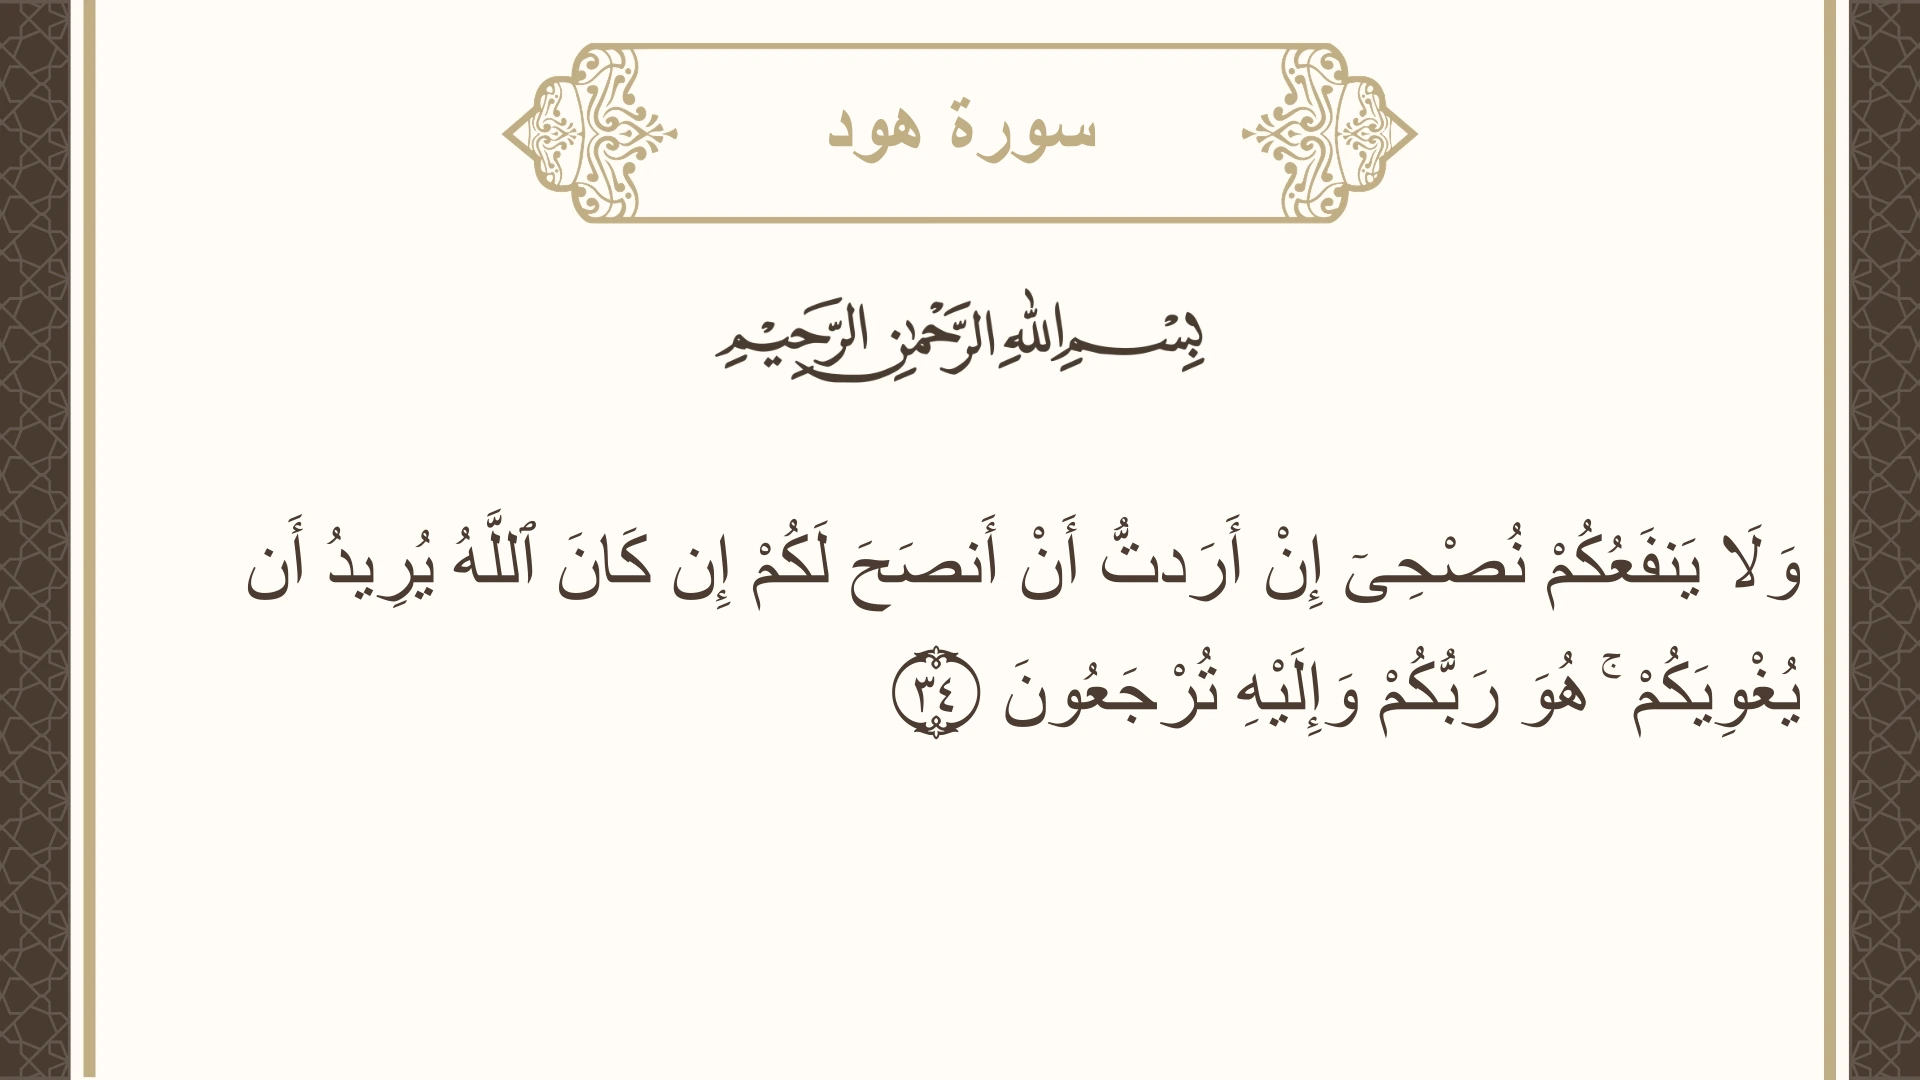 سورة هود
بِسْمِ اللهِ الرَّحْمٰنِ الرَّحِيْمِ
وَلَا يَنفَعُكُمْ نُصْحِىٓ إِنْ أَرَدتُّ أَنْ أَنصَحَ لَكُمْ إِن كَانَ ٱللَّهُ يُرِيدُ أَن
يُغْوِيَكُمْ ۚ هُوَ رَبُّكُمْ وَإِلَيْهِ تُرْجَعُونَ ٣٤